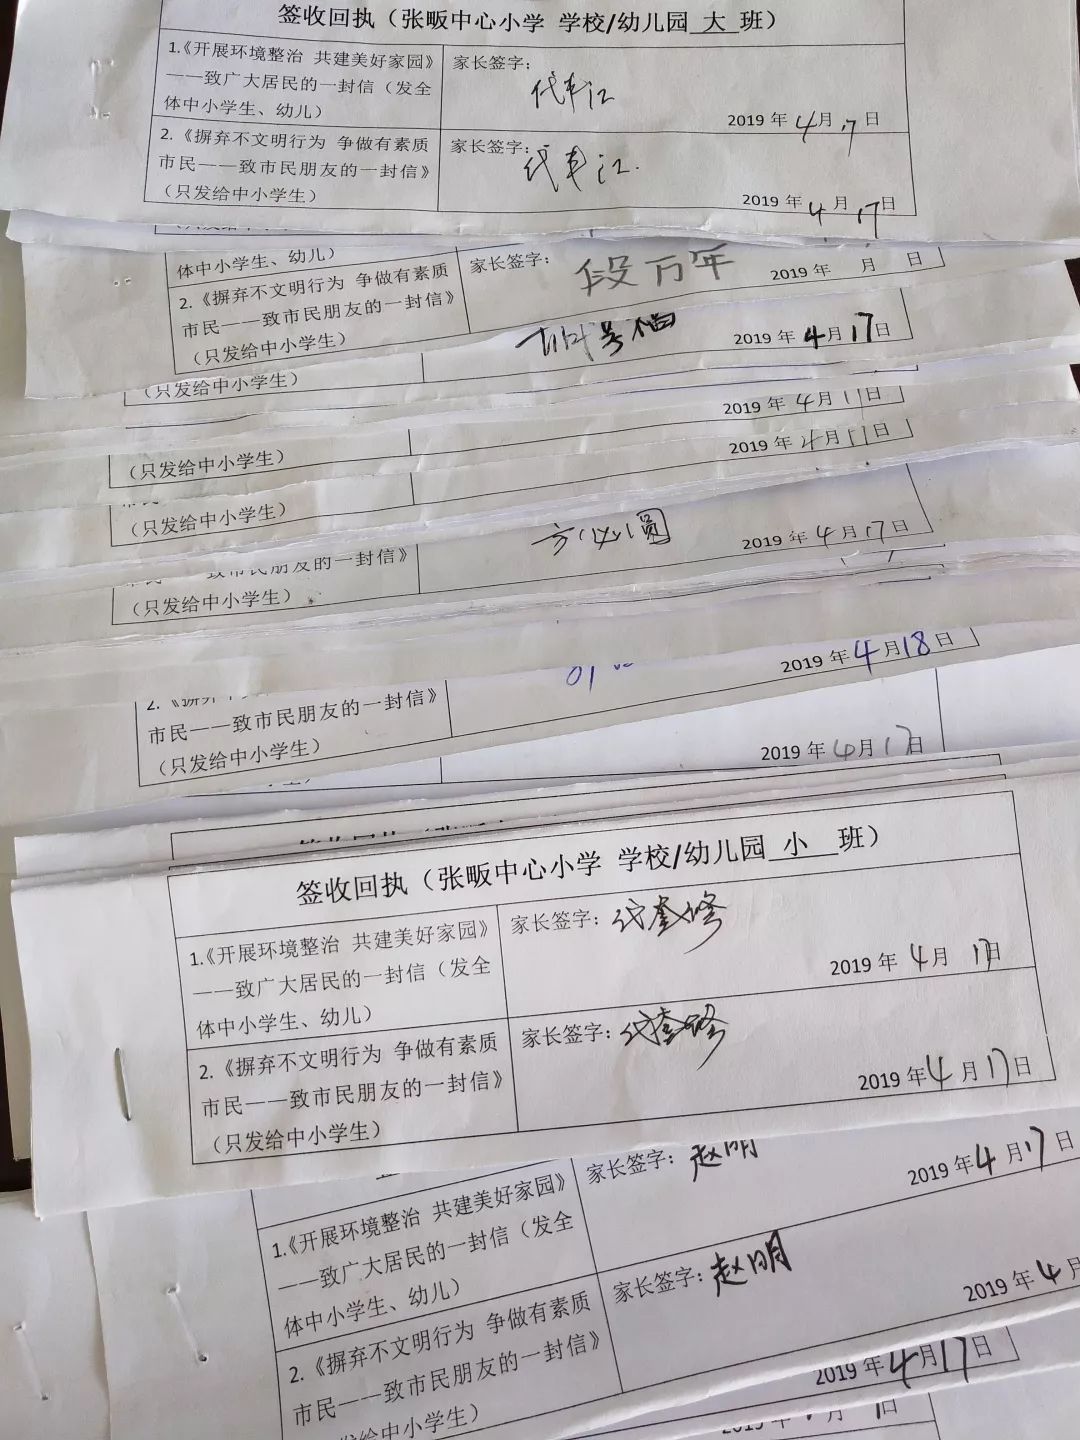 签收回执（张畈中心小学 学校/幼儿园 大 班）
1.《开展环境整治 共建美好家园》
——致广大居民的一封信（发全
体中小学生、幼儿）
家长签字：
2019 年 4 月 17 日
2.《摒弃不文明行为 争做有素质
市民——致市民朋友的一封信》
（只发给中小学生）
家长签字：
2019 年 4 月 17 日
体中小学生、幼儿）
2.《摒弃不文明行为 争做有素质
市民——致市民朋友的一封信》
（只发给中小学生）
家长签字：
段万年
2019 年 月 日
2019 年 4 月 17 日
（只发给中小学生）
2019 年 4 月 11 日
（只发给中小学生）
2019 年 4 月 11 日
（只发给中小学生）
方必圆
2019 年 4 月 17 日
（只发给中小学生）
2019 年 4 月 18 日
市民——致市民朋友的一封信》
（只发给中小学生）
2019 年 4 月 17 日
签收回执（张畈中心小学 学校/幼儿园 小 班）
1.《开展环境整治 共建美好家园》
——致广大居民的一封信（发全
体中小学生、幼儿）
家长签字：
2019 年 4 月 17 日
2.《摒弃不文明行为 争做有素质
市民——致市民朋友的一封信》
（只发给中小学生）
家长签字：
2019 年 4 月 17 日
1.《开展环境整治 共建美好家园》
——致广大居民的一封信（发全
体中小学生、幼儿）
家长签字：赵明
2019 年 4 月 17 日
2.《摒弃不文明行为 争做有素质
市民——致市民朋友的一封信》
家长签字：赵明
2019 年 4 月
2019 年 4 月 17 日